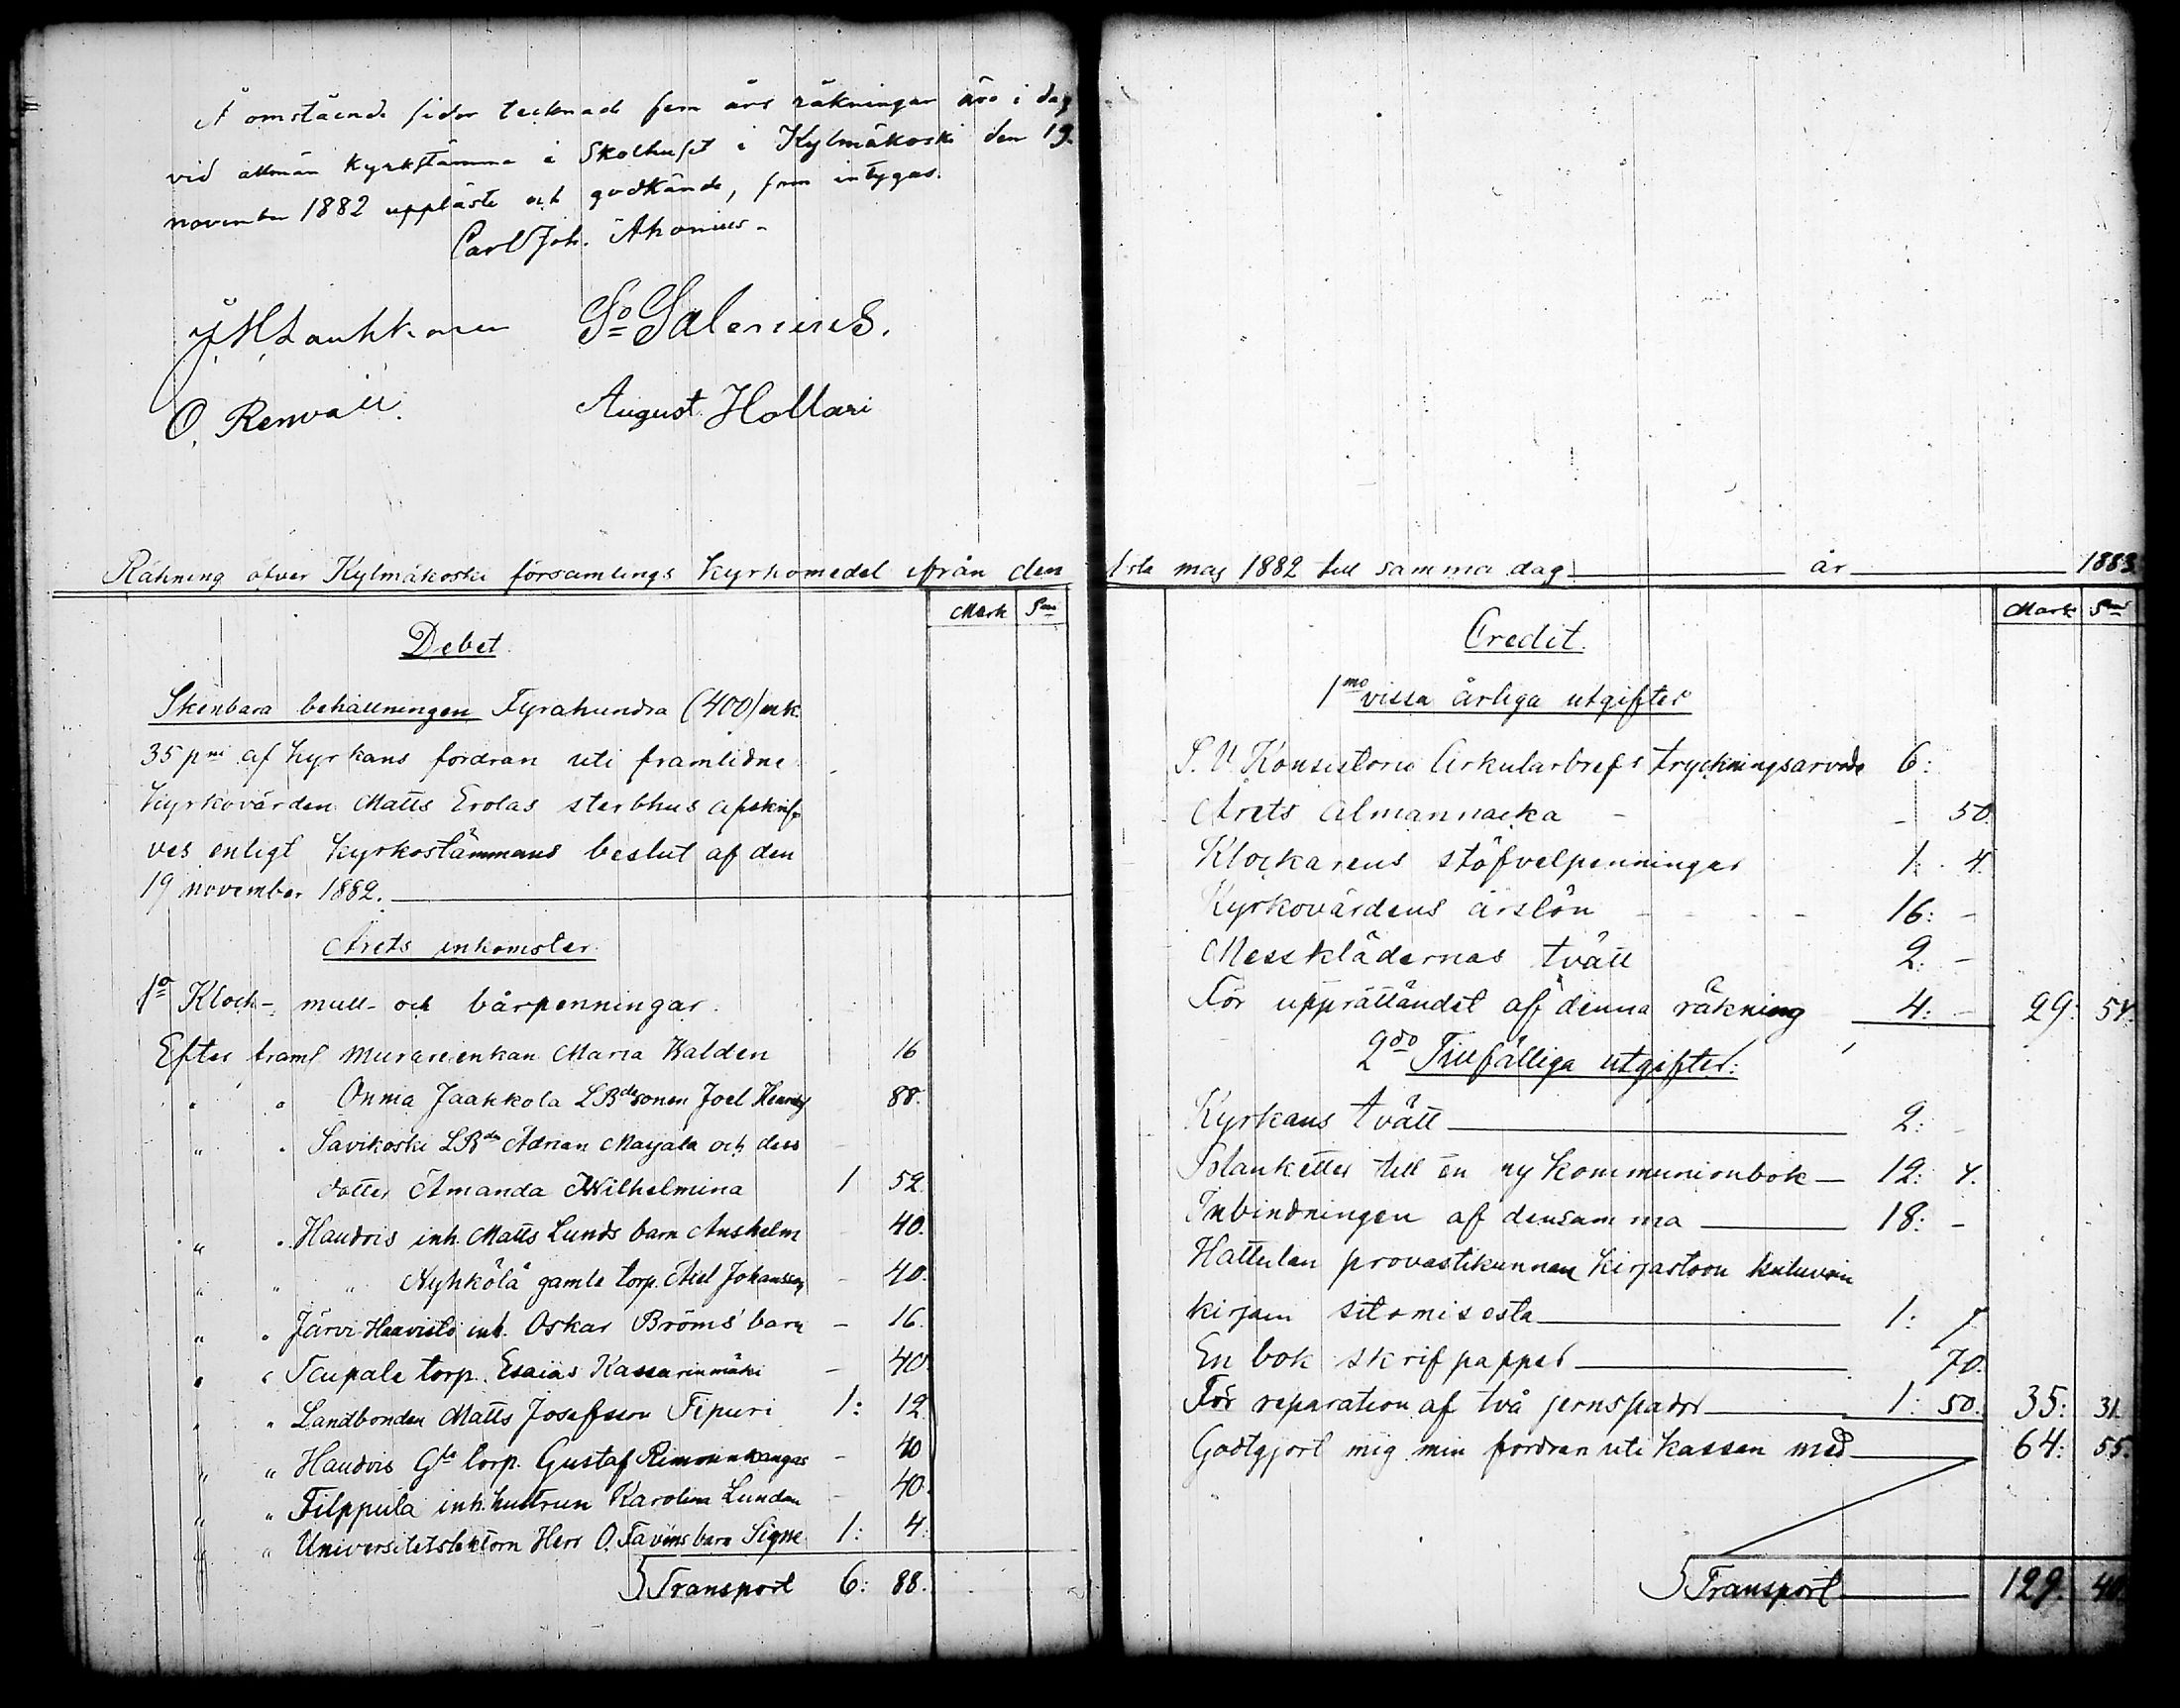 Å omstående sidor tecknade fem års räkningar äro i dag
vid allmän kyrkstämma i Skolhuset i Kylmäkoski den 19.
november 1882 uppläste och godkände, som intygas.
Carl Joh. Ahonius.
O. Renvall.
August Hollari
Räkning öfver Kylmäkoski församlings kyrkomedel ifrån den 1sta maj 1882 till samma dag år 1883.
Mark Pni
Debet.
Skenbara behållningen Fyrahundra (400) mk.
35 pni af kyrkans fordran uti framlidne
Kyrkovärden Matts Erolas sterbhus afskrif-
ves enligt kyrkostämmans beslut af den
19 november 1882.
Årets inkomster.
1o Klock-, mull- och bårpenningar.
Efter framl murareenkan Maria Walden 16
" " Onma Jaakkola LBdesonen Joel 88.
" " Savikoski LBdn Adrian Marjala och dess
dotter Amanda Wilhelmina 1 52.
" " Haudois inh. Matts Lunds barn Anshelm - 40.
" " " Nyhkölä gamle torp. Axel Johansson - 40.
" " Järvi-Haavisto inh. Oskar Bröms barn - 16.
" " torp. Esaias Kassarinmäki - 40.
" " Landbonden Matts Josefsson Tipuri 1: 12.
" " Haudois Gle torp. Gustaf - 40
" " Filppula inh. hustrun Karolina Lundan - 40.
" " Universitetslektorn Herr O. barn Signe 1: 4.
Transport 6: 88.
Mark Pni
Credit.
1mo vissa årliga utgifter
S. V. Konsistorii Cirkulärbrefs tryckningsarvode 6:
Årets almannacka - - 50.
Klockarens stöfvelpenningar 1: 4.
Kyrkovärdens årslön - - - 16: -
Messklädernas tvätt 2: -
För upprättandet af denna räkning 4: - 29: 54.
2do Tillfälliga utgifter:
Kyrkans tvätt 2: -
Blanketter till en ny kommunionbok 12: 4.
Inbindningen af densamma 18: -
Hattulan provastikunnan kirjastoon kuluvain
kirjain sitomisesta 1: 7.
En bok skrifpapper 70.
För reparation af två jernspador 1: 50. 35: 31.
Godtgjort mig min fordran uti kassan med 64: 55.
Transport 129. 40.